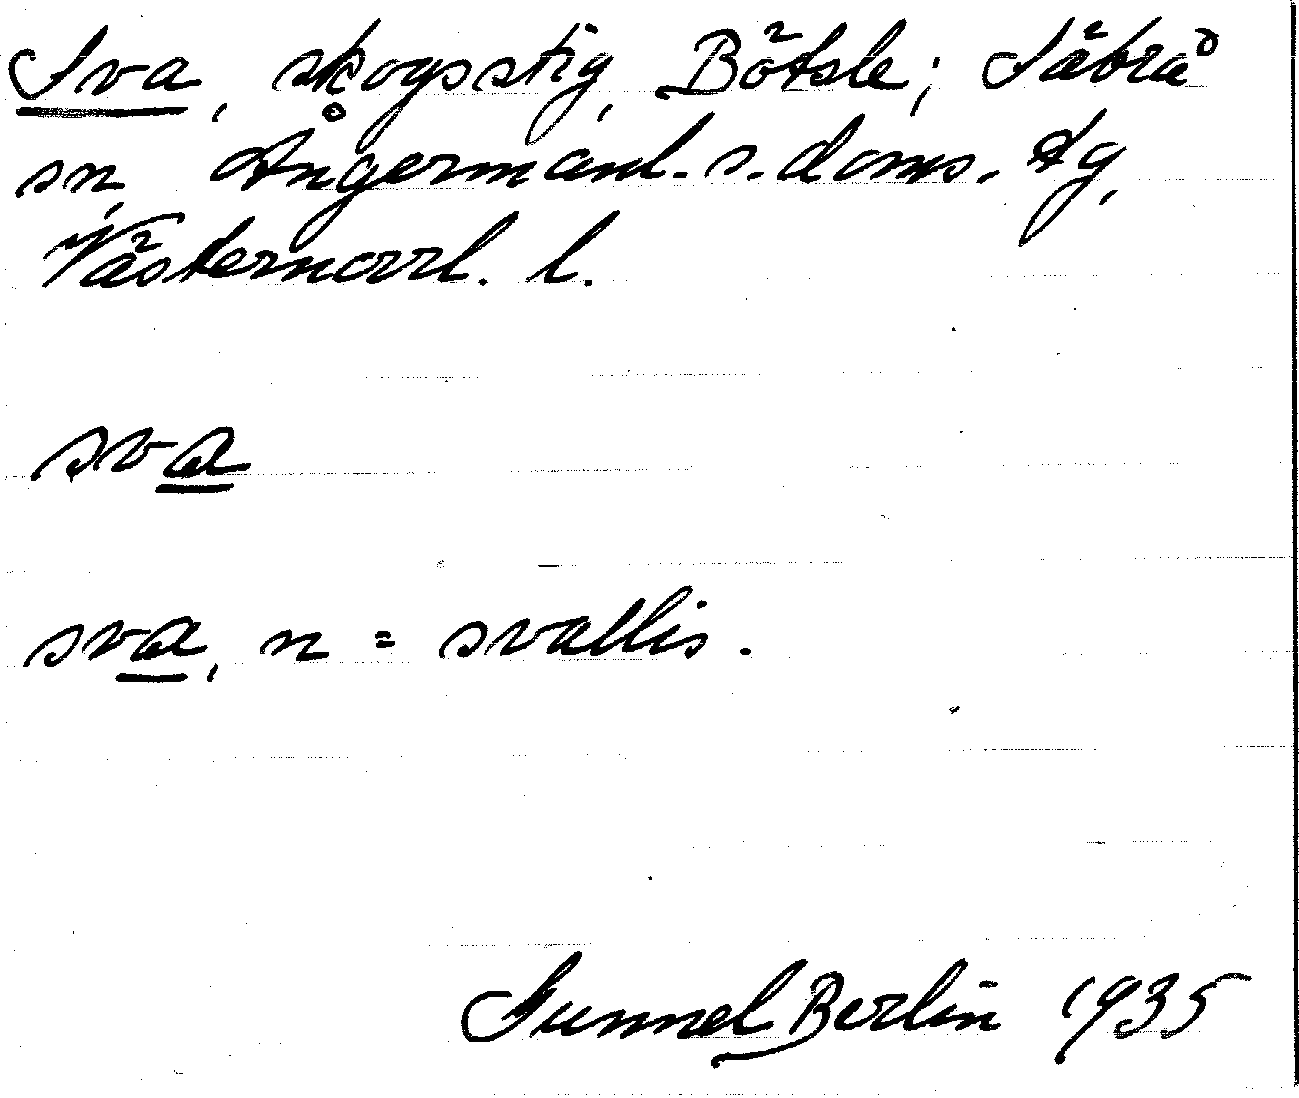 Sva, skogsstig, Bötsle; Säbrå
sn, Ångermanl. s. doms. tg,
Västernorrl. l.
sva
sva, n = svallis.
Gunnel Berlin 1935